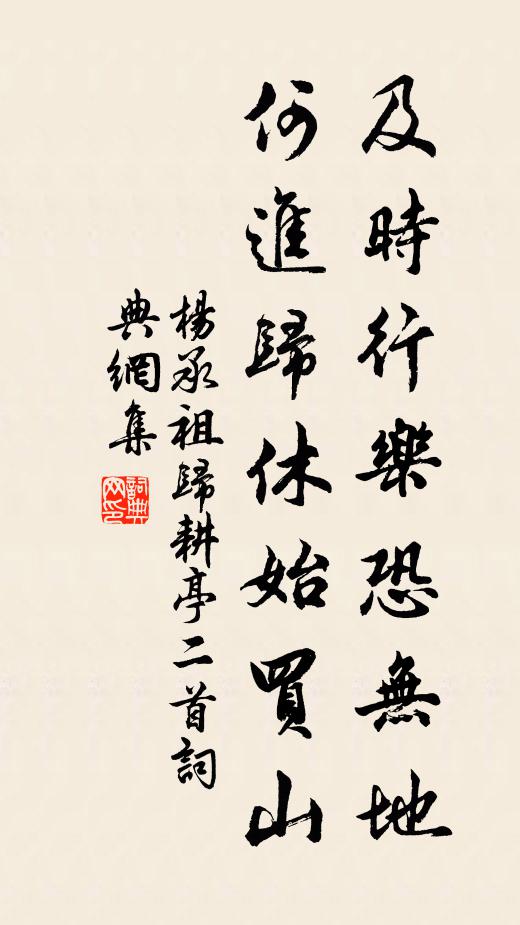 及時行樂恐無地
何進歸休始買山
楊承祖歸耕亭二首詞
典網集
詞典
网印